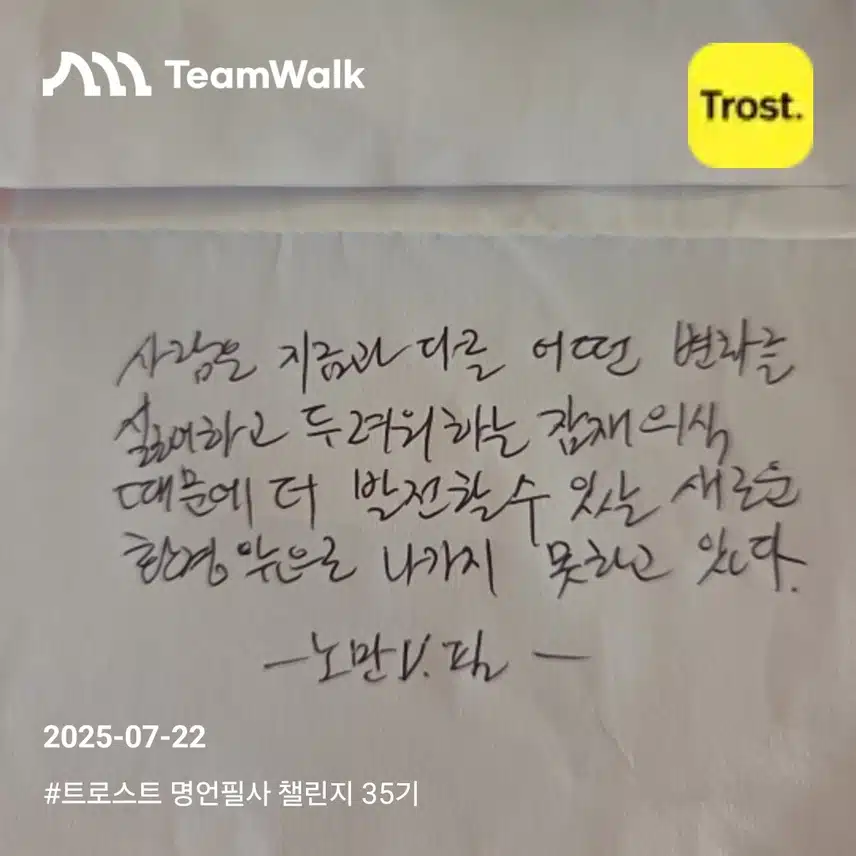 TeamWalk
Trost.
사람은 지금과 다를 어떤 변화를
싫어하고 두려워하는 잠재의식
때문에 더 발전할 수 있는 새로운
환경 앞으로 나가지 못하고 있다.
—노만 V. 필—
2025-07-22
#트로스트 명언필사 챌린지 35기